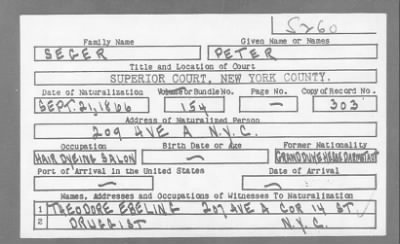 S260
Family Name Given Name or Names
SEGER PETER
Title and Location of Court
SUPERIOR COURT, NEW YORK COUNTY.
Date of Naturalization Volume or Bundle No. Page No. Copy of Record No.
SEPT. 21, 1866 154 — 303
Address of Naturalized Person
209 AVE A N.Y.C.
Occupation Birth Date or Age Former Nationality
HAIR DYEING SALON — GRAND DUKE HESSE DARMSTADT
Port of Arrival in the United States Date of Arrival
— —
Names, Addresses and Occupations of Witnesses To Naturalization
1 THEODORE EBELING 207 AVE A COR 14 ST
2 DRUGGIST N.Y.C.